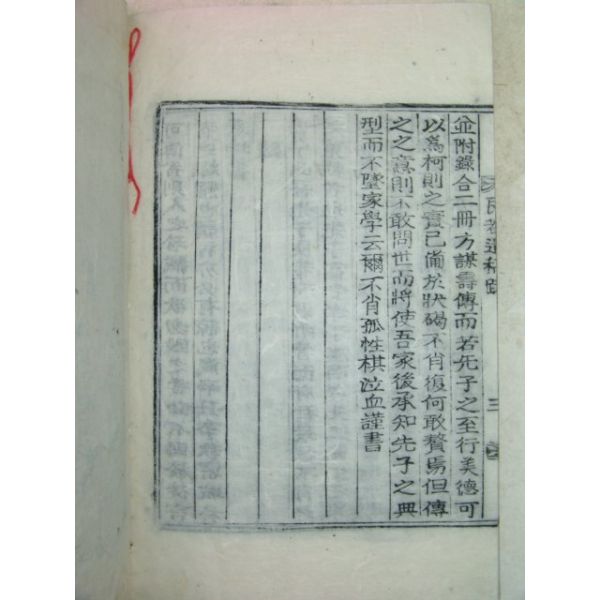 並附錄合二冊方謀壽傳而若先子之至行美德可
以爲柯則之實已備於狀碣不肖復何敢贅焉但傳
之之意則不敢問世而將使吾家後承知先子之典
型而不墜家學云爾不肖孤性棋泣血謹書
艮巷遺稿跋
三